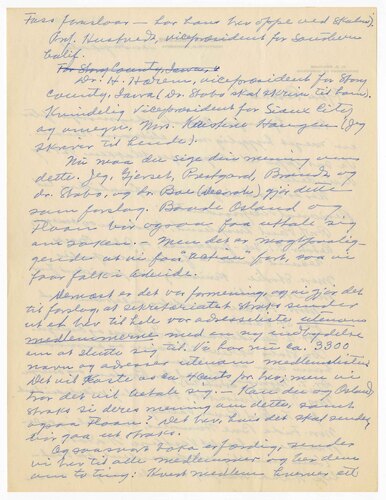 Foss foreslaar — har hans brev oppe ved skolen).
Prof. Hustvedt, vicepresident for Southern
Calif.
For Story County, Iowa,
Dr. H. Harem, vicepresident for Story
County, Iowa (Dr. Stobo skal skrive til ham).
Kvindelig vicepresident for Sioux City
og omegn, Mrs. Kristine Haugen (jeg
skriver til hende).
Nu maa du sige din mening om
dette. Jeg, Gjerset, Prestgard, Brandt og
dr. Stobo, og dr. Boe (Decorah) gjör dette
som forslag. Baade Osland og
Floan bör ogsaa faa uttale sig
om saken. — Men det er magtpaalig-
gende at vi faar "action" fort, saa vi
faar folk i arbeide.
Dernæst er det vor formening, og vi gjör det
til forslag at sekretariatet straks sender
ut et brev til hele vor adresseliste utenom
medlemmerne med en ny indbydelse
om at slutte sig til. Vi har nu ca. 3300
navn og adresser utenom medlemslisten.
Det vil koste os ca 4 cents pr. brev; men vi
tror det vil betale sig. — Kan du og Osland
straks si deres mening om dette, samt
ogsaa Floan? Det brev, hvis det skal sendes,
bör gaa ut straks.
Og saasnart dette er færdig, sender
vi brev til alle medlemmer og ber dem
om to ting: Hvert medlem hverver ett